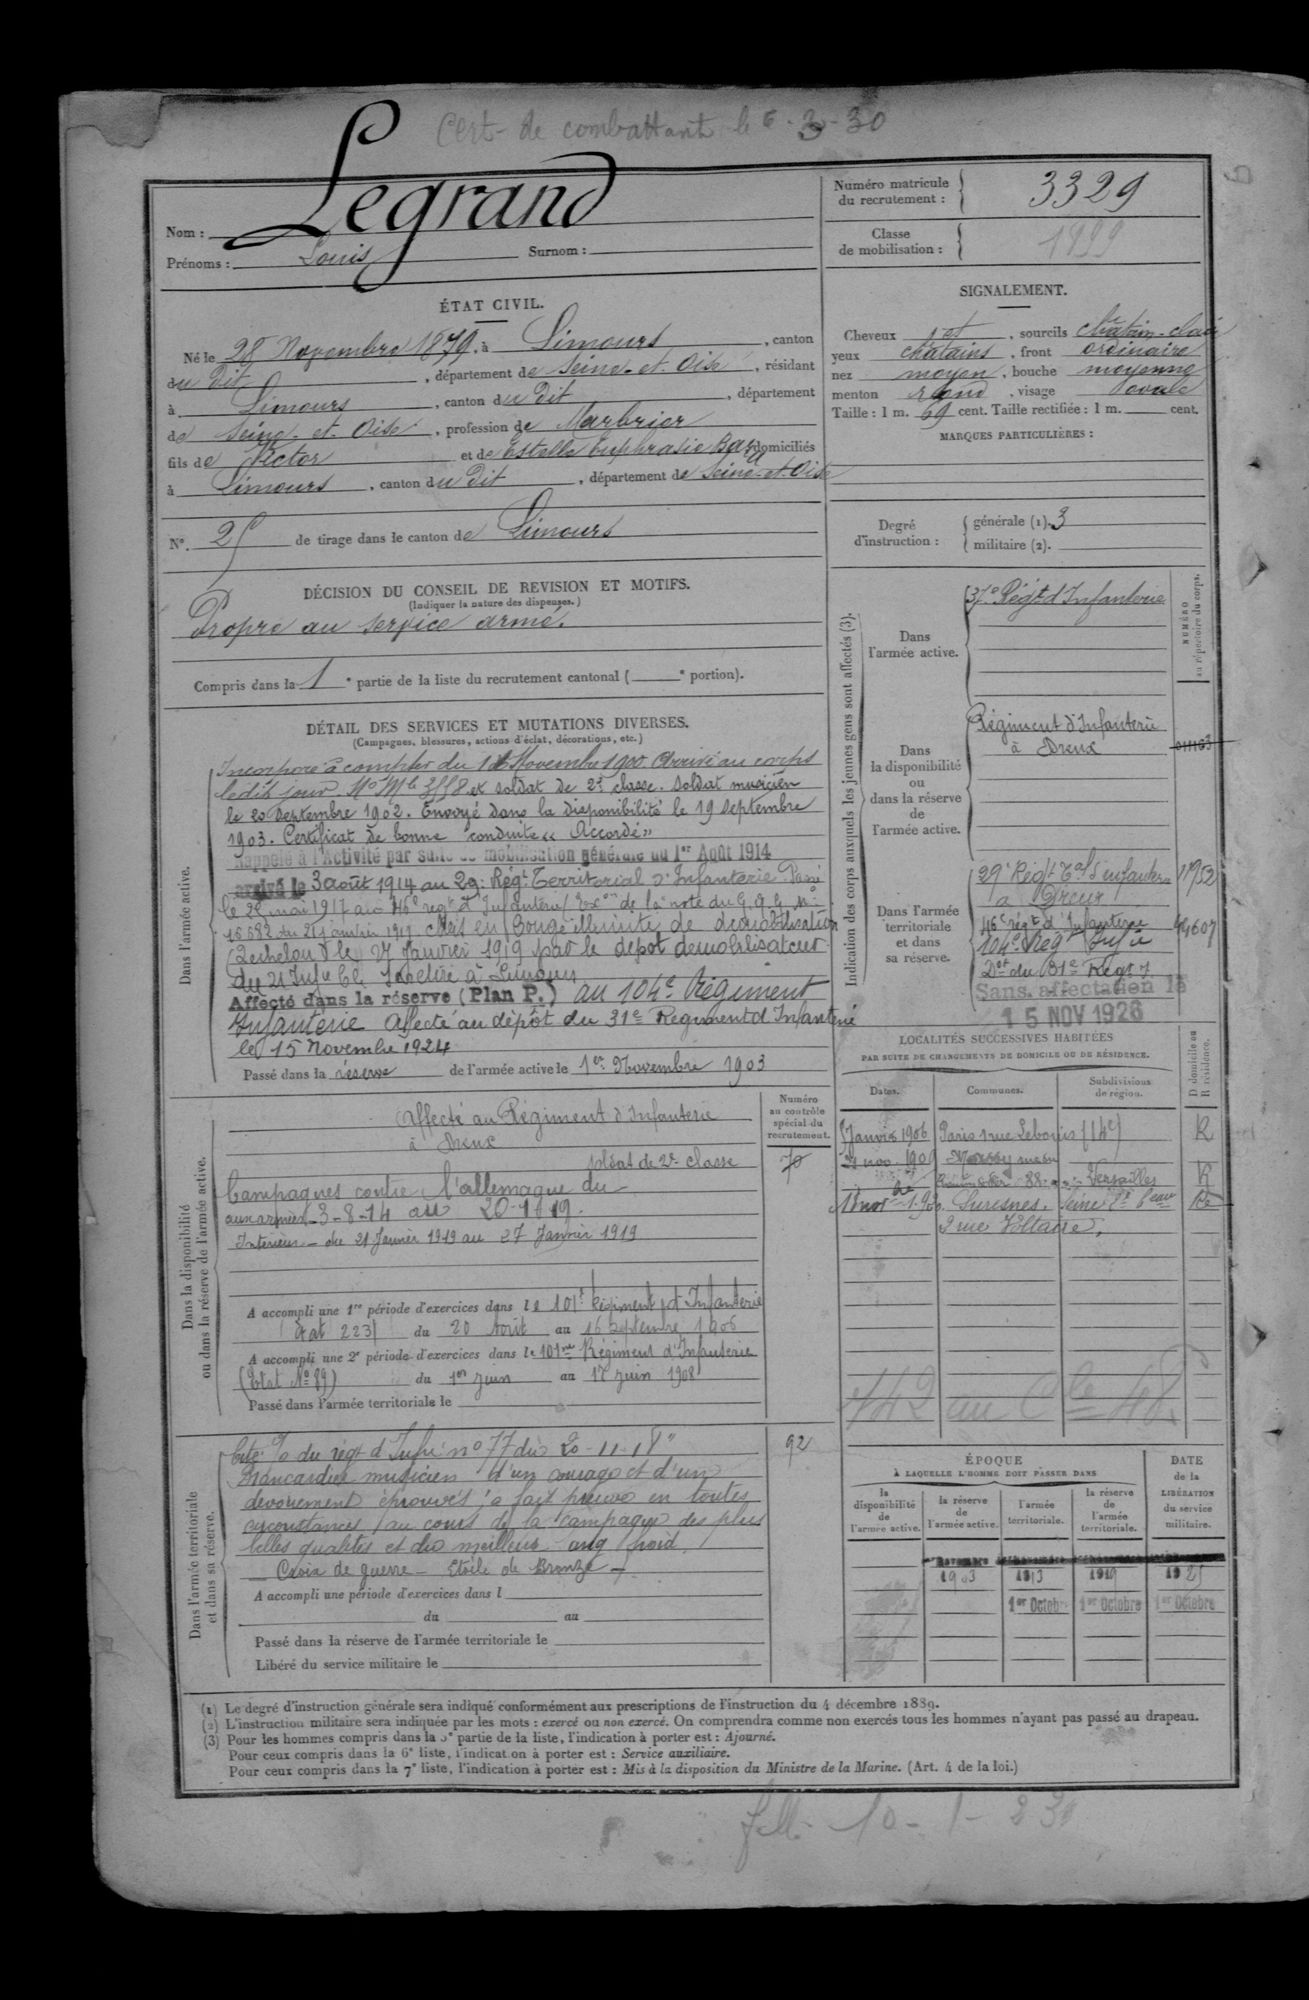 Cert. de combattant le 6-3-30
Nom : Legrand
Prénoms : Louis Surnom :
Numéro matricule du recrutement : 3329
Classe de mobilisation : 1899
ÉTAT CIVIL.
Né le 28 Novembre 1879, à Limours, canton
du dit, département de Seine-et-Oise, résidant
à Limours, canton du dit, département
de Seine-et-Oise, profession de Marbrier
fils de Victor et de Estelle Euphrasie domiciliés
à Limours, canton du dit, département de Seine-et-Oise
N° 25 de tirage dans le canton de Limours
SIGNALEMENT.
Cheveux et, sourcils châtain-clair
yeux chatains, front ordinaire
nez moyen, bouche moyenne
menton rond, visage ovale
Taille : 1 m. 69 cent. Taille rectifiée : 1 m. cent.
MARQUES PARTICULIÈRES :
Degré d'instruction :
générale (1). 3
militaire (2).
DÉCISION DU CONSEIL DE REVISION ET MOTIFS.
(Indiquer la nature des dispenses.)
Propre au service armé.
Compris dans la 1e partie de la liste du recrutement cantonal ( e portion).
DÉTAIL DES SERVICES ET MUTATIONS DIVERSES.
(Campagnes, blessures, actions d'éclat, décorations, etc.)
Dans l'armée active.
Incorporé à compter du Novembre 1900. Arrivé au corps
ledit jour. No Mle et soldat de 2e classe. Soldat musicien
le 20 Septembre 1902. Envoyé dans la disponibilité le 19 Septembre
1903. Certificat de bonne conduite « Accordé »
Rappelé à l'Activité par suite de mobilisation générale du 1er Août 1914
arrivé le 3 août 1914 au 29e Régt Territorial d'Infanterie. Passé
le mai 1917 au 46e régt d'Infanterie de la note du G.Q.G. No
Congé illimité de démobilisation
le 27 Janvier 1919 par le dépot démobilisateur
du 21 Infie Se retire à Limours
Affecté dans la réserve (Plan P.) au 104e Régiment
Infanterie Affecté au dépôt du 31e Régiment d'Infanterie
le 15 Novembre 1924
Passé dans la réserve de l'armée active le 1er Novembre 1903
Indication des corps auxquels les jeunes gens sont affectés (3).
NUMÉRO au répertoire du corps.
Dans l'armée active.
37e Régt d'Infanterie
Dans la disponibilité ou dans la réserve de l'armée active.
Régiment d'Infanterie
à Dreux
Dans l'armée territoriale et dans sa réserve.
29e Régt Tal d'infanterie
à Dreux
46e régt d'Infanterie
104e Régt Infie
Dôt du 31e Régt
Sans affectation le
15 NOV 1926
LOCALITÉS SUCCESSIVES HABITÉES
PAR SUITE DE CHANGEMENTS DE DOMICILE OU DE RÉSIDENCE.
Dates. Communes. Subdivisions de région. D domicile ou R résidence.
Janvier 1906 Paris 1 rue Lebouis (14e) R
nov 1909 Massy
88 Versailles R
Suresnes. Seine
2 rue Voltaire.
Dans la disponibilité ou dans la réserve de l'armée active.
Numéro au contrôle spécial du recrutement.
Affecté au Régiment d'Infanterie
à Dreux
soldat de 2e classe 70
Campagnes contre l'allemagne du
aux armées 3-8-14 au 20-1-19.
Intérieur - du 21 Janvier 1919 au 27 Janvier 1919
A accompli une 1re période d'exercices dans le 101e Régiment d'Infanterie
Etat 223 du 20 Août au 16 Septembre 1906
A accompli une 2e période d'exercices dans le 101me Régiment d'Infanterie
(Etat No 89) du 1er Juin au 17 Juin 1908
Passé dans l'armée territoriale le
Dans l'armée territoriale et dans sa réserve.
Cité du régt d'Infie no 77 du 20-11-18 92
Brancardier musicien d'un courage et d'un
dévouement éprouvés ; a fait preuve en toutes
circonstances au cours de la campagne des plus
belles qualités et du meilleur sang froid.
Croix de guerre - Etoile de Bronze
A accompli une période d'exercices dans l
du au
Passé dans la réserve de l'armée territoriale le
Libéré du service militaire le
ÉPOQUE
À LAQUELLE L'HOMME DOIT PASSER DANS
la disponibilité de l'armée active. la réserve de l'armée active. l'armée territoriale. la réserve de l'armée territoriale.
DATE de la LIBÉRATION du service militaire.
1903 1913 1919 1925
1er Octobre 1er Octobre 1er Octobre
(1) Le degré d'instruction générale sera indiqué conformément aux prescriptions de l'instruction du 4 décembre 1889.
(2) L'instruction militaire sera indiquée par les mots : exercé ou non exercé. On comprendra comme non exercés tous les hommes n'ayant pas passé au drapeau.
(3) Pour les hommes compris dans la 5e partie de la liste, l'indication à porter est : Ajourné.
Pour ceux compris dans la 6e liste, l'indication à porter est : Service auxiliaire.
Pour ceux compris dans la 7e liste, l'indication à porter est : Mis à la disposition du Ministre de la Marine. (Art. 4 de la loi.)